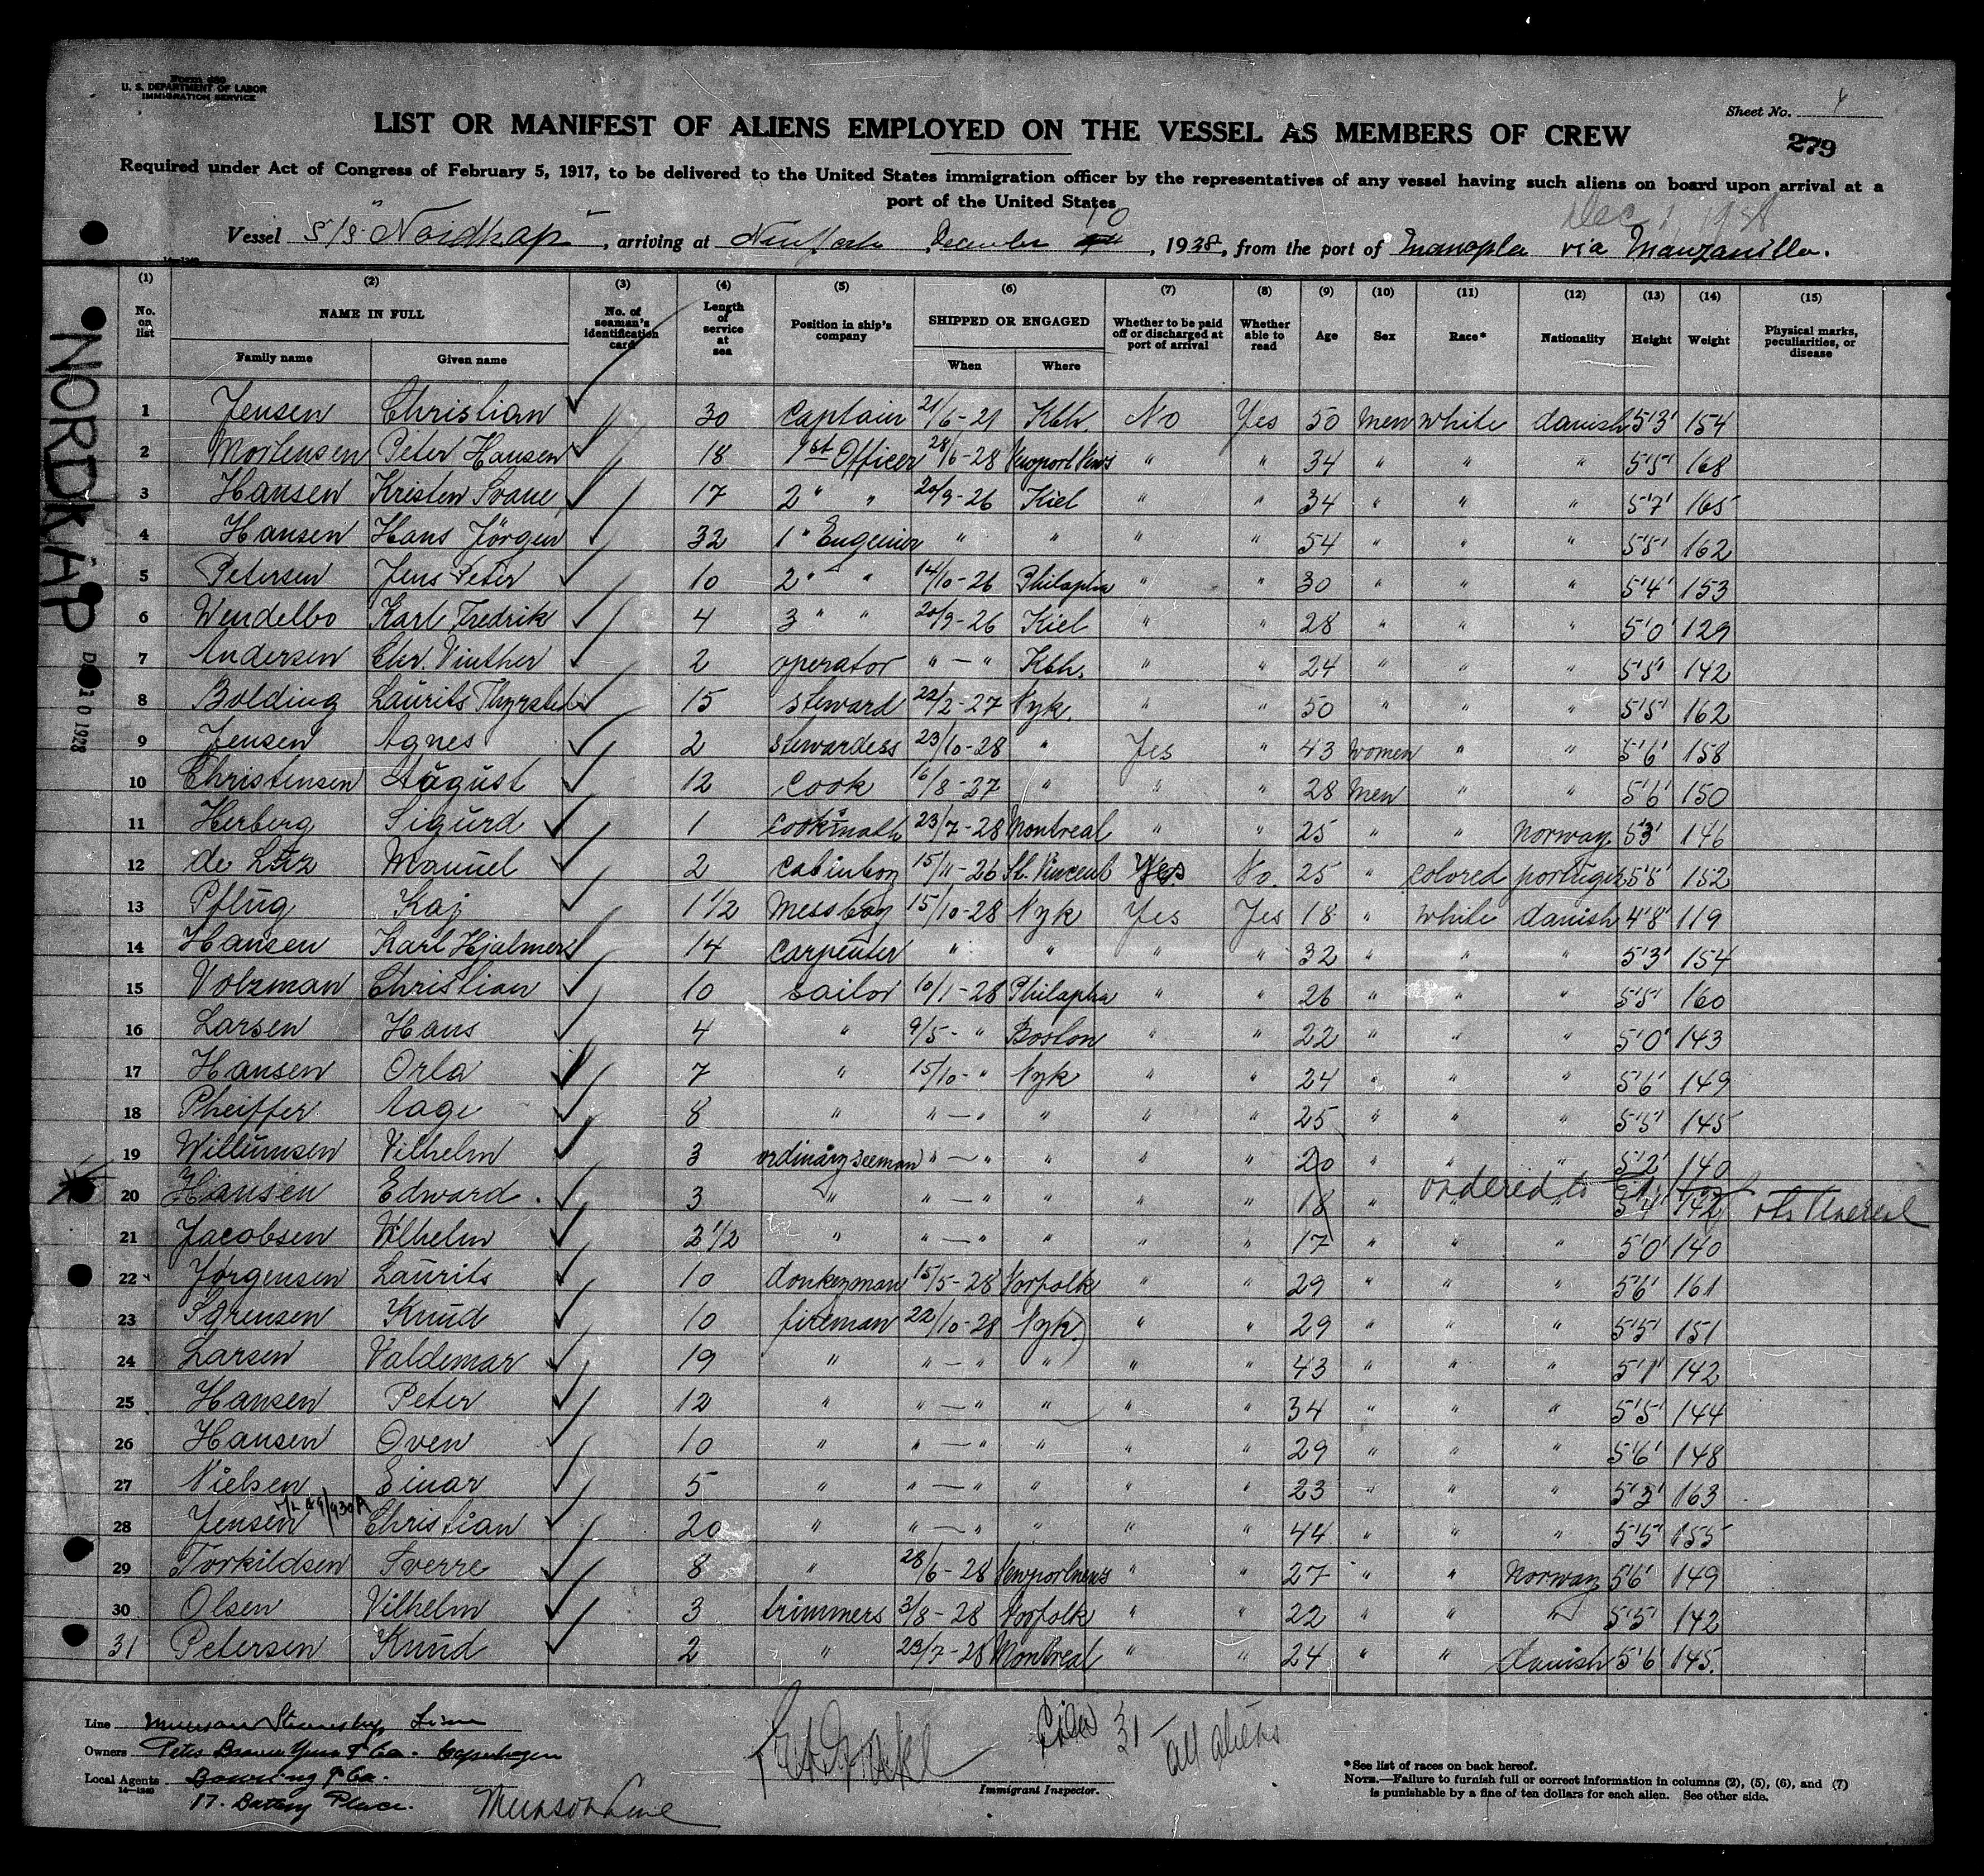 Form 689
U. S. DEPARTMENT OF LABOR
IMMIGRATION SERVICE
Sheet No. 4
LIST OR MANIFEST OF ALIENS EMPLOYED ON THE VESSEL AS MEMBERS OF CREW
279
Required under Act of Congress of February 5, 1917, to be delivered to the United States immigration officer by the representatives of any vessel having such aliens on board upon arrival at a
port of the United States
Dec 1, 1928
Vessel S/S "Nordkap", arriving at New York, December 10, 1928, from the port of Manopla via Manzanillo.
(1) (2) (3) (4) (5) (6) (7) (8) (9) (10) (11) (12) (13) (14) (15)
No. on list NAME IN FULL Family name Given name No. of seaman's identification card Length of service at sea Position in ship's company SHIPPED OR ENGAGED When Where Whether to be paid off or discharged at port of arrival Whether able to read Age Sex Race* Nationality Height Weight Physical marks, peculiarities, or disease
NORDKAP
DEC 10 1928
1 Jensen Christian 30 Captain 21/6-21 Kbh. No Yes 50 Men white danish 5'3' 154
2 Mortensen Peter Hansen 18 1st Officer 28/6-28 Newport News " " 34 " " " 5'5' 168
3 Hansen Kristen Svane 17 2 " " 20/9-26 Kiel " " 34 " " " 5'7' 165
4 Hansen Hans Jörgen 32 1" Engenier " " " " 54 " " " 5'5' 162
5 Petersen Jens Peter 10 2 " " 14/10-26 Philapha " " 30 " " " 5'4' 153
6 Wendelbo Karl Fredrik 4 3 " " 20/9-26 Kiel " " 28 " " " 5'0' 129
7 Andersen Chr. Vinther 2 operator " - " Kbh. " " 24 " " " 5'5' 142
8 Bolding Laurits Thyrsted 15 steward 22/2-27 Nyk. " " 50 " " " 5'5' 162
9 Jensen Agnes 2 stewardess 23/10-28 " Yes " 43 women " " 5'6' 158
10 Christensen August 12 cook 16/8-27 " " " 28 Men " " 5'6' 150
11 Herberg Sigurd 1 cooksmath 23/7-28 Montreal " " 25 " " Norway 5'3' 146
12 de Luz Manuel 2 cabinboy 15/11-26 St. Vincent Yes No. 25 " colored portugiz 5'5' 152
13 Pflug Kaj 1 1/2 Messboy 15/10-28 Nyk Yes Yes 18 " white danish 4'8' 119
14 Hansen Karl Hjalmer 14 carpenter " " " " 32 " " " 5'3' 154
15 Volzman Christian 10 sailor 10/1-28 Philapha " " 26 " " " 5'5' 160
16 Larsen Hans 4 " 9/5- " Boston " " 22 " " " 5'0' 143
17 Hansen Orla 7 " 15/10- " Nyk " " 24 " " " 5'6' 149
18 Pheiffer Aage 8 " " - " " " " 25 " " " 5'5' 145
19 Willumsen Vilhelm 3 ordinary seeman " - " " " " 20 " " " 5'2' 140
20 Hansen Edward. 3 " " - " " " " 18 " " " 5'4' 142
ordered to
21 Jacobsen Vilhelm 2 1/2 " " - " " " " 17 " " " 5'0' 140
22 Jørgensen Laurits 10 donkeyman 15/5-28 Norfolk " " 29 " " " 5'6' 161
23 Sørensen Knud 10 fireman 22/10-28 Nyk " " 29 " " " 5'5' 151
24 Larsen Valdemar 19 " " - " " " " 43 " " " 5'1' 142
25 Hansen Peter 12 " " - " " " " 34 " " " 5'5' 144
26 Hansen Oven 10 " " - " " " " 29 " " " 5'6' 148
27 Nielsen Einar 5 " " - " " " " 23 " " " 5'3' 163
28 Jensen Christian 20 " " - " " " " 44 " " " 5'5' 155
29 Torkildsen Sverre 8 " 28/6-28 Newportnews " " 27 " " Norway 5'6' 149
30 Olsen Vilhelm 3 trimmers 3/8-28 Norfolk " " 22 " " " 5'5' 142
31 Petersen Knud 2 " 23/7-28 Montreal " " 24 " " danish 5'6' 145.
Line Munson Steamship Line
Owners Copenhagen
Local Agents Bowring & Co.
14-1240
17. Battery Place.
Munson Line
Immigrant Inspector.
Crew 31 all aliens
*See list of races on back hereof.
NOTE.—Failure to furnish full or correct information in columns (2), (5), (6), and (7)
is punishable by a fine of ten dollars for each alien. See other side.